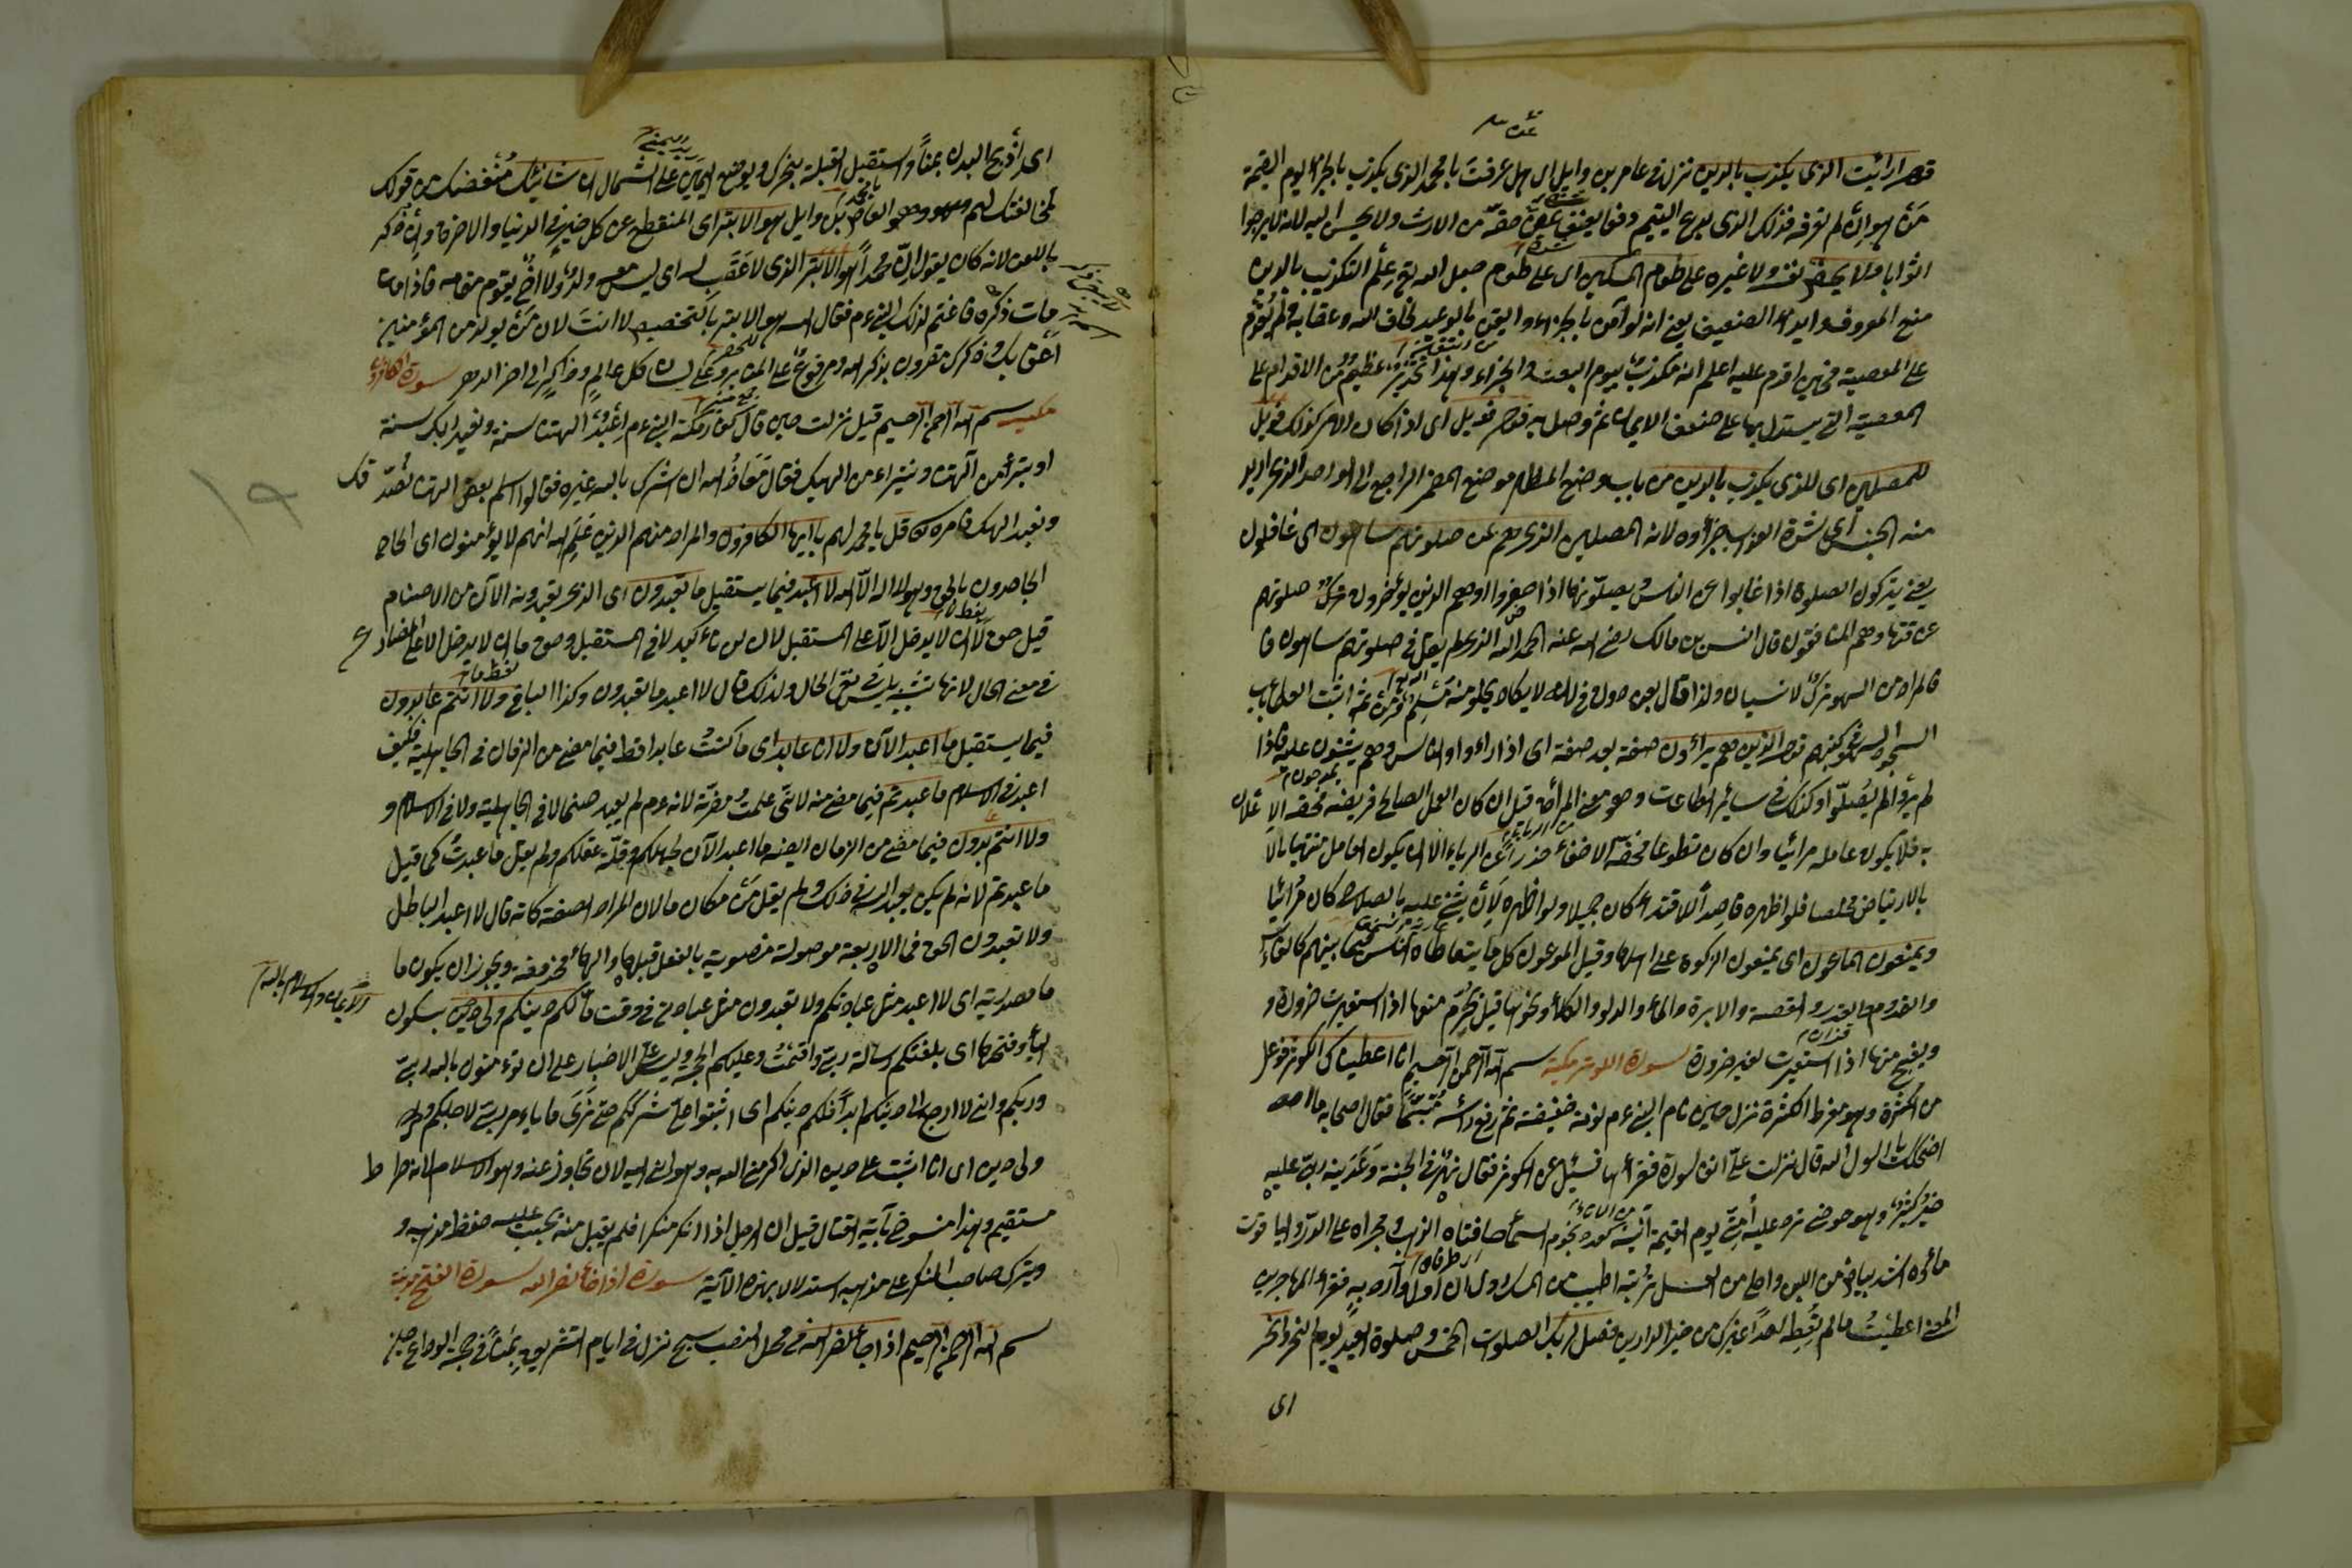 قوله ارايت الذي يكذب بالدين نزل في عاص بن وايل اي هل عرفت يا محمد الذي يكذب بالجزاء يوم القيمة
من هو ان لم تعرفه فذلك الذي يدع اليتيم حقه من الارث ولا يحسن اليه لانه لا يرجوا
الثوابا ولا يحض نفسه ولا غيره على طعام المسكين اي على طعام جعل الله علم التكذيب بالدين
منع المعروف وايذاء الضعيف يعني انه لو آمن بالجزاء وايقن بالوعيد لخاف الله وعقابه ولم يقدم
على المعصية فحين اقدم عليه اعلم انه مكذب بيوم البعث والجزاء وهذا تحذير عظيم من الاقدام على
المعصية التي يستدل بها على ضعف الايمان ثم وصل به قوله فويل اي اذا كان الامر كذلك فويل
للمصلين اي للذي يكذب بالدين من باب وضع المظهر موضع المضمر الراجع الى الواحد الذي اريد
منه الجنس اي شدة العذاب جزاؤه لانه المصلين الذين هم عن صلوتهم ساهون اي غافلون
يعني يتركون الصلوة اذا غابوا عن الناس ويصلونها اذا حضروا او هم الذين يؤخرون صلوتهم
عن وقتها وهم المنافقون قال انس بن مالك رضي الله عنه الحمد لله الذي لم يقل في صلوتهم ساهون
فالمراد من السهو ترك لا نسيان ولذا قال عن دون في لانه لا يكاد يخلو منه مسلم ومن ثمه اثبت العلماء باب
السجود السهو في كتبهم قوله الذين هم يراؤن صفة بعد صفة اي اذا راءوا الناس وهم يثنون عليهم فاذا
لم يروا لم يصلوا وكذلك في سائر الطاعات وهو معنى المراءة قيل ان كان العمل الصالح فريضة فحقه الاعلان
به فلا يكون عامله مرائيا وان كان تطوعا فحقه الاخفاء حذرا عن الرياء الا ان يكون العامل
بالارتياض مخلصا فلو اظهره قاصدا للاقتداء كان جميلا ولو اظهره لان يثنى عليه بالصلاح كان مرائيا
ويمنعون الماعون اي يمنعون الزكوة على اهلها وقيل الماعون كل ما يتعاطاه الناس فيما بينهم كالفاس
والقدوم والقدر والقصعة والابرة والماء والدلو والكلاء ونحوها قيل يحرم منعها اذا استعيرت ضرورة و
ويقبح منعها اذا استعيرت لغير ضرورة سورة الكوثر مكية بسم الله الرحمن الرحيم انا اعطيناك الكوثر فوعل
من الكثرة وهو مفرط الكثرة نزل حين نام النبي عم نومة خفيفة ثم رفع رأسه متبسما فقال اصحابه ما
اضحكك يا رسول الله قال نزلت علي آنفا سورة فقرأها فسئل عن الكوثر فقال نهر في الجنة وعدنيه ربي عليه
خير كثير وهو حوض ترد عليه امتي يوم القيمة آنيته كعدد نجوم السماء حافتاه الذهب ومجراه على الدر والياقوت
ماؤه اشد بياضا من اللبن واحلى من العسل تربته اطيب من المسك واول وارد به فقراء المهاجرين
المعنى اعطيت ما لم يعطه احدا غيرك من خير الدارين فصل لربك الصلوات الخمس وصلوة العيد يوم النحر وانحر
اي
اي اذبح البدن بمنا واستقبل القبلة بنحرك ويوضع اليمين على الشمال ان شانئك مبغضك من قولك
لمخالفتك لهم وهو العاص بن وايل هو الابتر اي المنقطع عن كل خير في الدنيا والاخرة وان ذكر
باللعن لانه كان يقول ان محمدا هو الابتر الذي لا عقب له اي ليس معه ولد ولا اخ يقوم مقامه فاذا مات
مات ذكره فاغتم لذلك النبي عم فقال الله هو الابتر بالتخصيص لا انت لان من يولد من المؤمنين
اعقابك وذكرك مقرون بذكر الله ومرفوع على المنابر وعلى لسان كل عالم وذاكر الى اخر الدهر سورة الكافرون
مكية بسم الله الرحمن الرحيم قيل نزلت حين قال كفار مكة للنبي عم اعبد آلهتنا سنة ونعبد الهك سنة
او تبرأ من آلهتنا ونتبراء من الهك فقال معاذ الله ان اشرك بالله غيره فقالوا استلم بعض آلهتنا نصدقك
ونعبد الهك فامره الله قل يا محمد لهم يا ايها الكافرون والمراد منهم الذين علم الله انهم لا يؤمنون اي
الجاحدون بالحق وهو لا اله الا الله لا اعبد فيما يستقبل ما تعبدون اي الذي تعبدونه الآن من الاصنام
قيل حق لا ان لا يدخل الا على المستقبل لان لن تأكيد لا في المستقبل وحق ما ان لا يدخل الا على المضارع
في معنى الحال لانها تشبه بليس في نفي الحال ولذلك قال لا اعبد ما تعبدون وكذا الباقي ولا انتم عابدون
فيما يستقبل ما اعبد الآن ولا انا عابد اي ما كنت عابدا قط فيما مضى من الزمان في الجاهلية فكيف
اعبد في الاسلام ما عبدتم فيما مضى منه لاني علمت مضرته لانه عم لم يعبد صنما لا في الجاهلية ولا في الاسلام و
ولا انتم عابدون فيما مضى من الزمان ايضا ما اعبد الآن لجهلكم وقلة عقلكم ولم يقل ما عبدت كما قيل
ما عبدتم لانه لم يكن يعبد الله في ذلك ولم يقل من مكان ما لان المراد الصفة كانه قال لا اعبد الباطل
ولا تعبدون الحق فما الاربعة موصولة منصوبة بالفعل قبلها والهاء محذوفة ويجوز ان يكون ما
ما مصدرية اي لا اعبد مثل عبادتكم ولا تعبدون مثل عبادتي في وقت ما لكم دينكم ولي دين بسكون
الياء وفتحها اي بلغتكم رسالة ربي واقمت عليكم الحجة وليس علي الاختيار على ان تؤمنون بالله ربي
وربكم واني لا ارجع الى دينكم ابدا فلكم دينكم اي اثبتوا على شرككم حتى نرى ما يأمر ربي لاجلكم
ولي دين اي انا اثبت على ديني الذي اكرمني الله به وهو الاسلام لانه صراط
مستقيم وهذا منسوخ بآية القتال قيل ان الرجل اذا انكر منكرا فلم يقبل منه يجب عليه حفظ مذهبه و
ويترك صاحب المنكر على مذهبه استدلالا بهذه الآية سورة اذا جاء نصر الله سورة الفتح مدنية
بسم الله الرحمن الرحيم اذا جاء نصر الله في محل النصب بسبح نزل في ايام التشريق بمنا في حجة الوداع حين